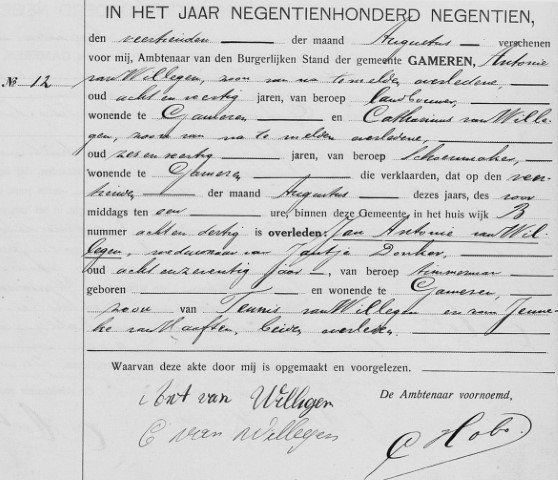 IN HET JAAR NEGENTIENHONDERD NEGENTIEN,
den veertienden der maand Augustus verschenen
voor mij, Ambtenaar van den Burgerlijken Stand der gemeente GAMEREN, Antonie
№ 12
van Willegen, zoon van na te melden overledene,
oud acht en veertig jaren, van beroep landbouwer,
wonende te Gameren en Catharinus van Wille-
gen, zoon van na te melden overledene,
oud zes en veertig jaren, van beroep Schoenmaker,
wonende te Gameren die verklaarden, dat op den veer-
tienden der maand Augustus dezes jaars, des voor
middags ten een ure, binnen deze Gemeente, in het huis wijk B
nummer acht en dertig is overleden: Jan Antonie van Wil-
legen, weduwnaar van Jantje Donker,
oud acht en zeventig jaar, van beroep timmerman
geboren en wonende te Gameren,
zoon van Teunis van Willegen en van Jenne-
ke van Haaften, beiden overleden.
Waarvan deze akte door mij is opgemaakt en voorgelezen.
De Ambtenaar voornoemd,
Ant van Willegen
C van Willegen
C Hobo